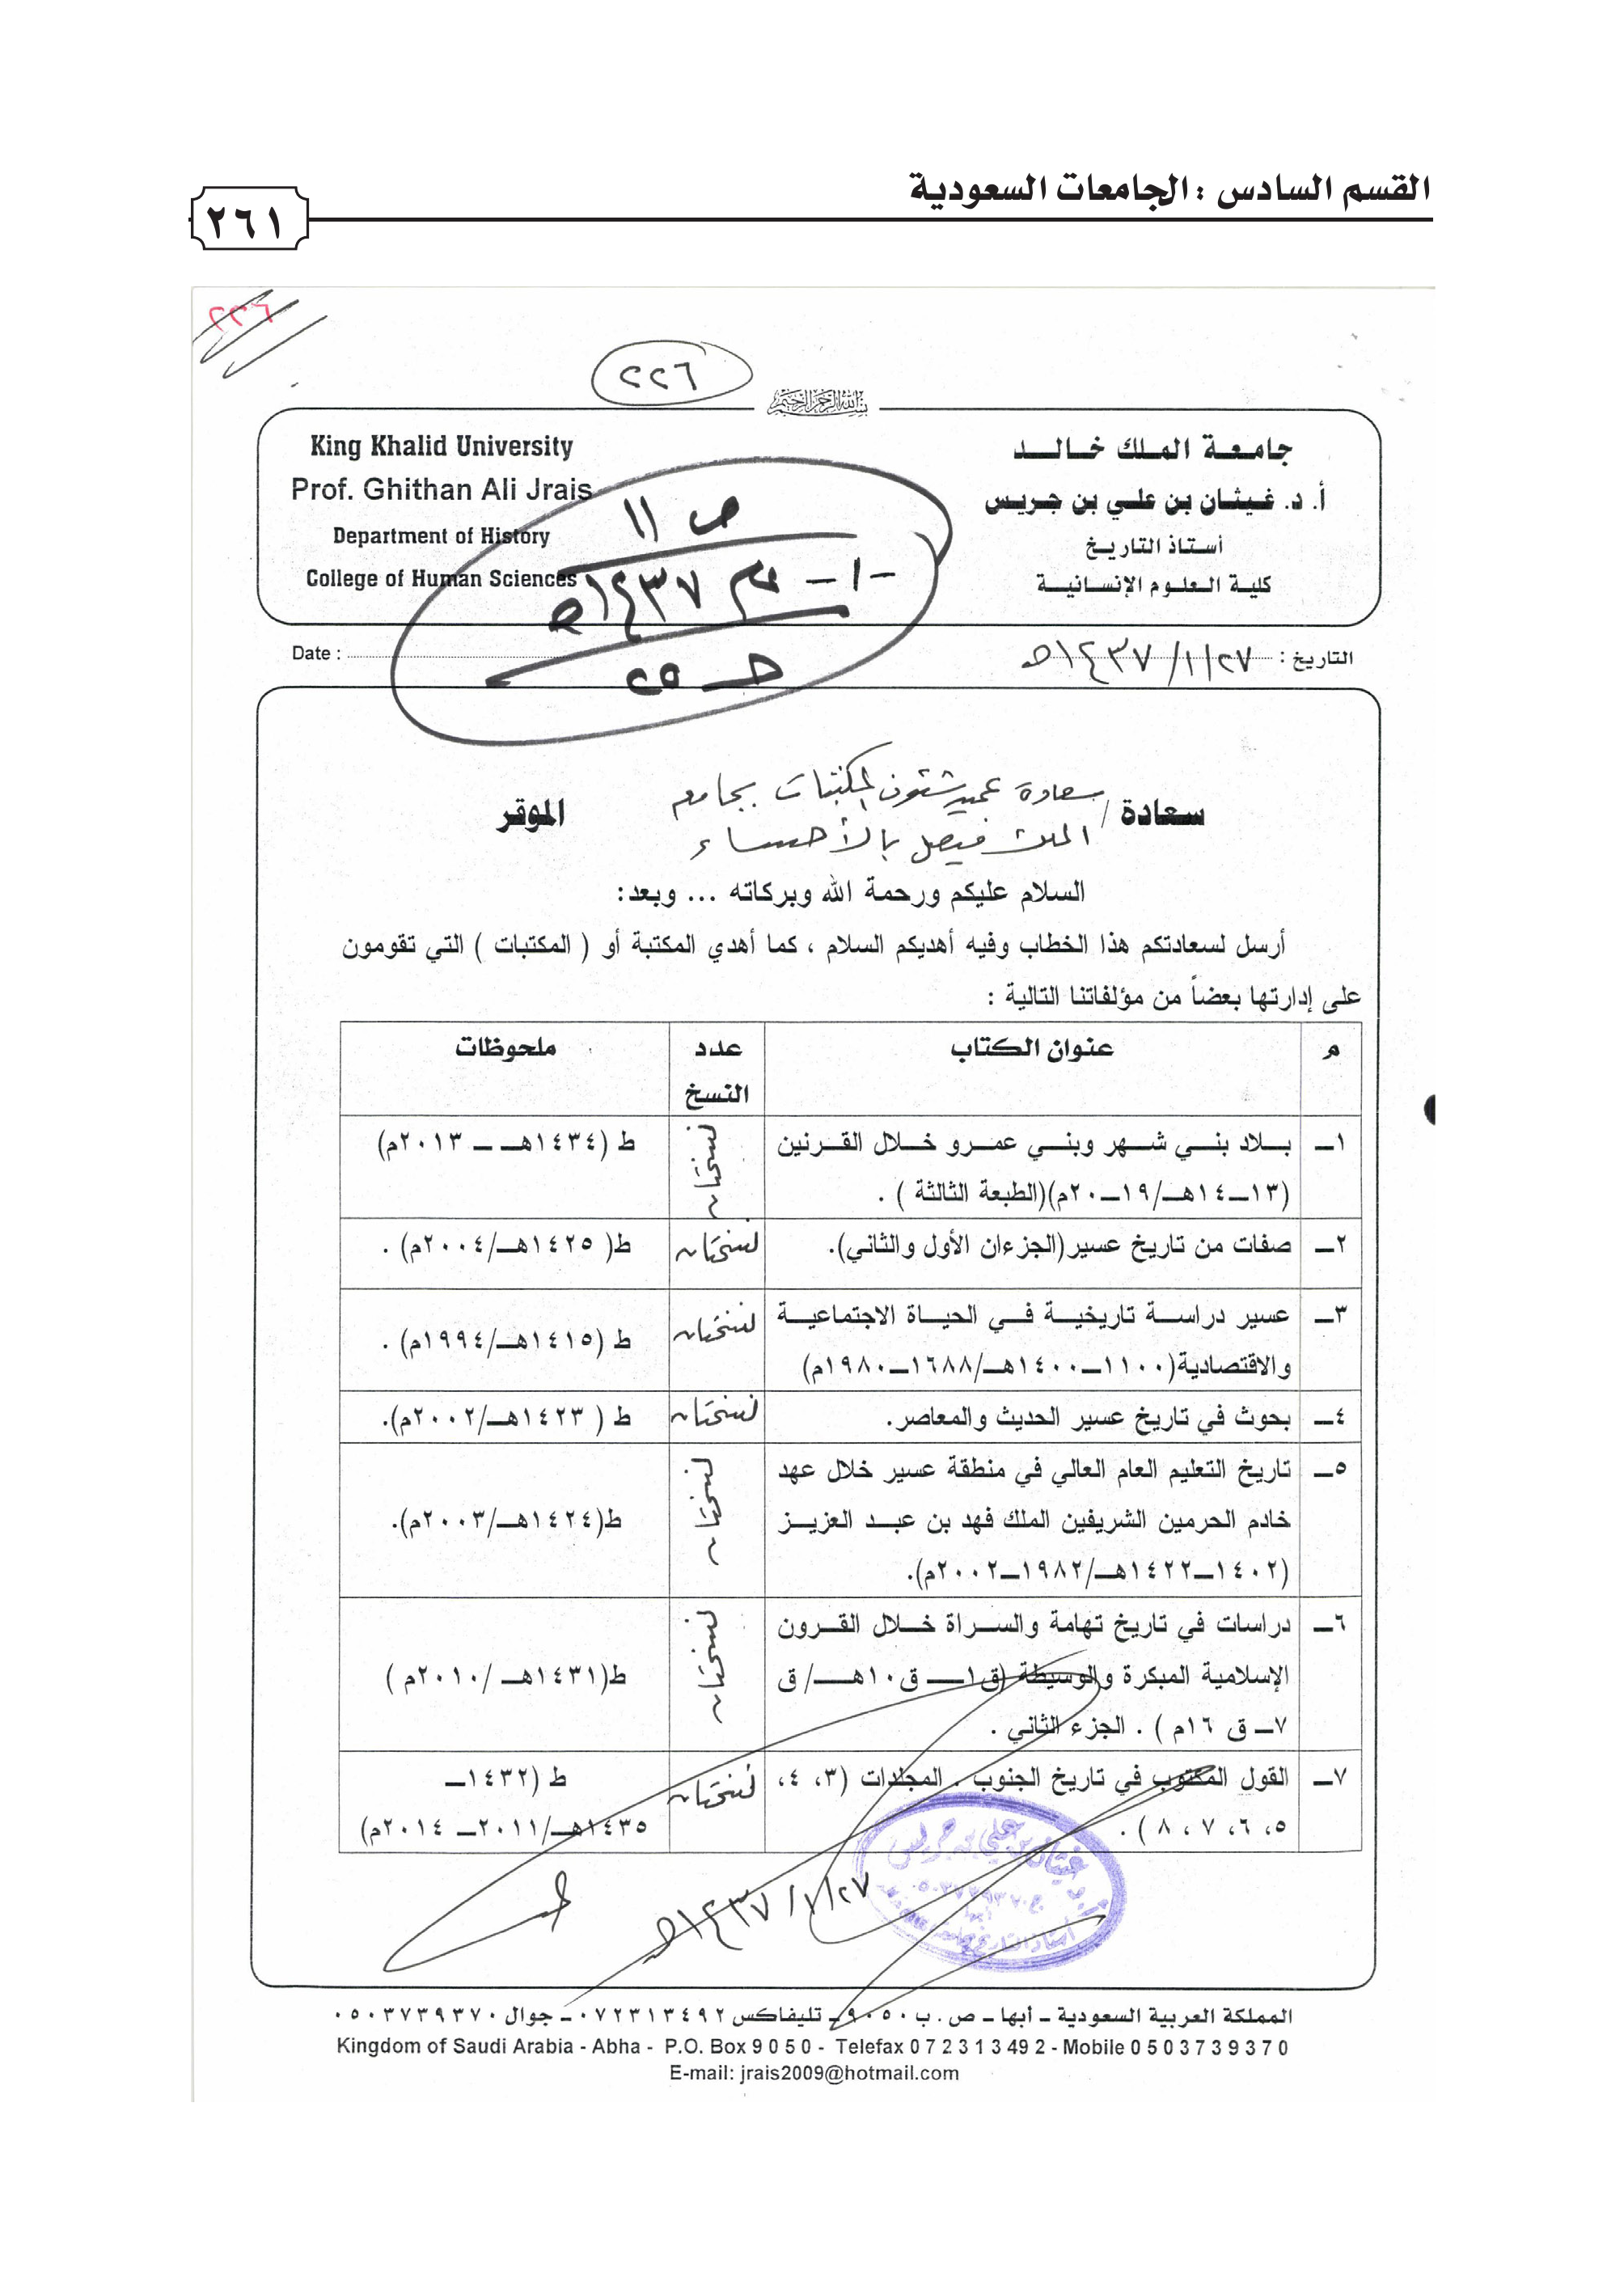 القسم السادس : الجامعات السعودية
٢٦١
٢٢٦
٢٢٦
بسم الله الرحمن الرحيم
جامعة الملك خالد
أ. د. غيثان بن علي بن جريس
أستاذ التاريخ
كلية العلوم الإنسانية
King Khalid University
Prof. Ghithan Ali Jrais
Department of History
College of Human Sciences
ص ١١
١٤٣٧هـ
التاريخ : ١٤٣٧/١/٢٧هـ
Date :
سعادة / سعادة عميد شئون المكتبات بجامعة الموقر
الملك فيصل بالأحساء
السلام عليكم ورحمة الله وبركاته ... وبعد:
أرسل لسعادتكم هذا الخطاب وفيه أهديكم السلام ، كما أهدي المكتبة أو ( المكتبات ) التي تقومون
على إدارتها بعضاً من مؤلفاتنا التالية :
م عنوان الكتاب عدد النسخ ملحوظات
١ــ بلاد بني شهر وبني عمرو خلال القرنين نسختان ط (١٤٣٤هـ ــ ٢٠١٣م)
(١٣ــ١٤هـ/١٩ــ٢٠م)(الطبعة الثالثة ) .
٢ــ صفات من تاريخ عسير(الجزءان الأول والثاني). نسختان ط( ١٤٢٥هـ/٢٠٠٤م) .
٣ــ عسير دراسة تاريخية في الحياة الاجتماعية نسختان ط (١٤١٥هـ/١٩٩٤م) .
والاقتصادية(١١٠٠ــ١٤٠٠هـ/١٦٨٨ــ١٩٨٠م)
٤ــ بحوث في تاريخ عسير الحديث والمعاصر. نسختان ط ( ١٤٢٣هـ/٢٠٠٢م).
٥ــ تاريخ التعليم العام العالي في منطقة عسير خلال عهد نسختان ط(١٤٢٤هـ/٢٠٠٣م).
خادم الحرمين الشريفين الملك فهد بن عبد العزيز
(١٤٠٢ــ١٤٢٢هـ/١٩٨٢ــ٢٠٠٢م).
٦ــ دراسات في تاريخ تهامة والسراة خلال القرون نسختان ط(١٤٣١هـ /٢٠١٠م )
الإسلامية المبكرة والوسيطة (ق١ــ ق١٠هـ/ ق
٧ــ ق ١٦م ) . الجزء الثاني .
٧ــ القول المكتوب في تاريخ الجنوب . المجلدات (٣، ٤، نسختان ط (١٤٣٢ــ
٥، ٦، ٧ ، ٨ ) . ١٤٣٥هـ/٢٠١١ــ ٢٠١٤م)
١٤٣٧/١/٢٧هـ
المملكة العربية السعودية ـ أبها ـ ص. ب ٩٠٥٠ـ تليفاكس ٠٧٢٣١٣٤٩٢ـ جوال ٠٥٠٣٧٣٩٣٧٠
Kingdom of Saudi Arabia - Abha - P.O. Box 9 0 5 0 - Telefax 0 7 2 3 1 3 4 9 2 - Mobile 0 5 0 3 7 3 9 3 7 0
E-mail: jrais2009@hotmail.com